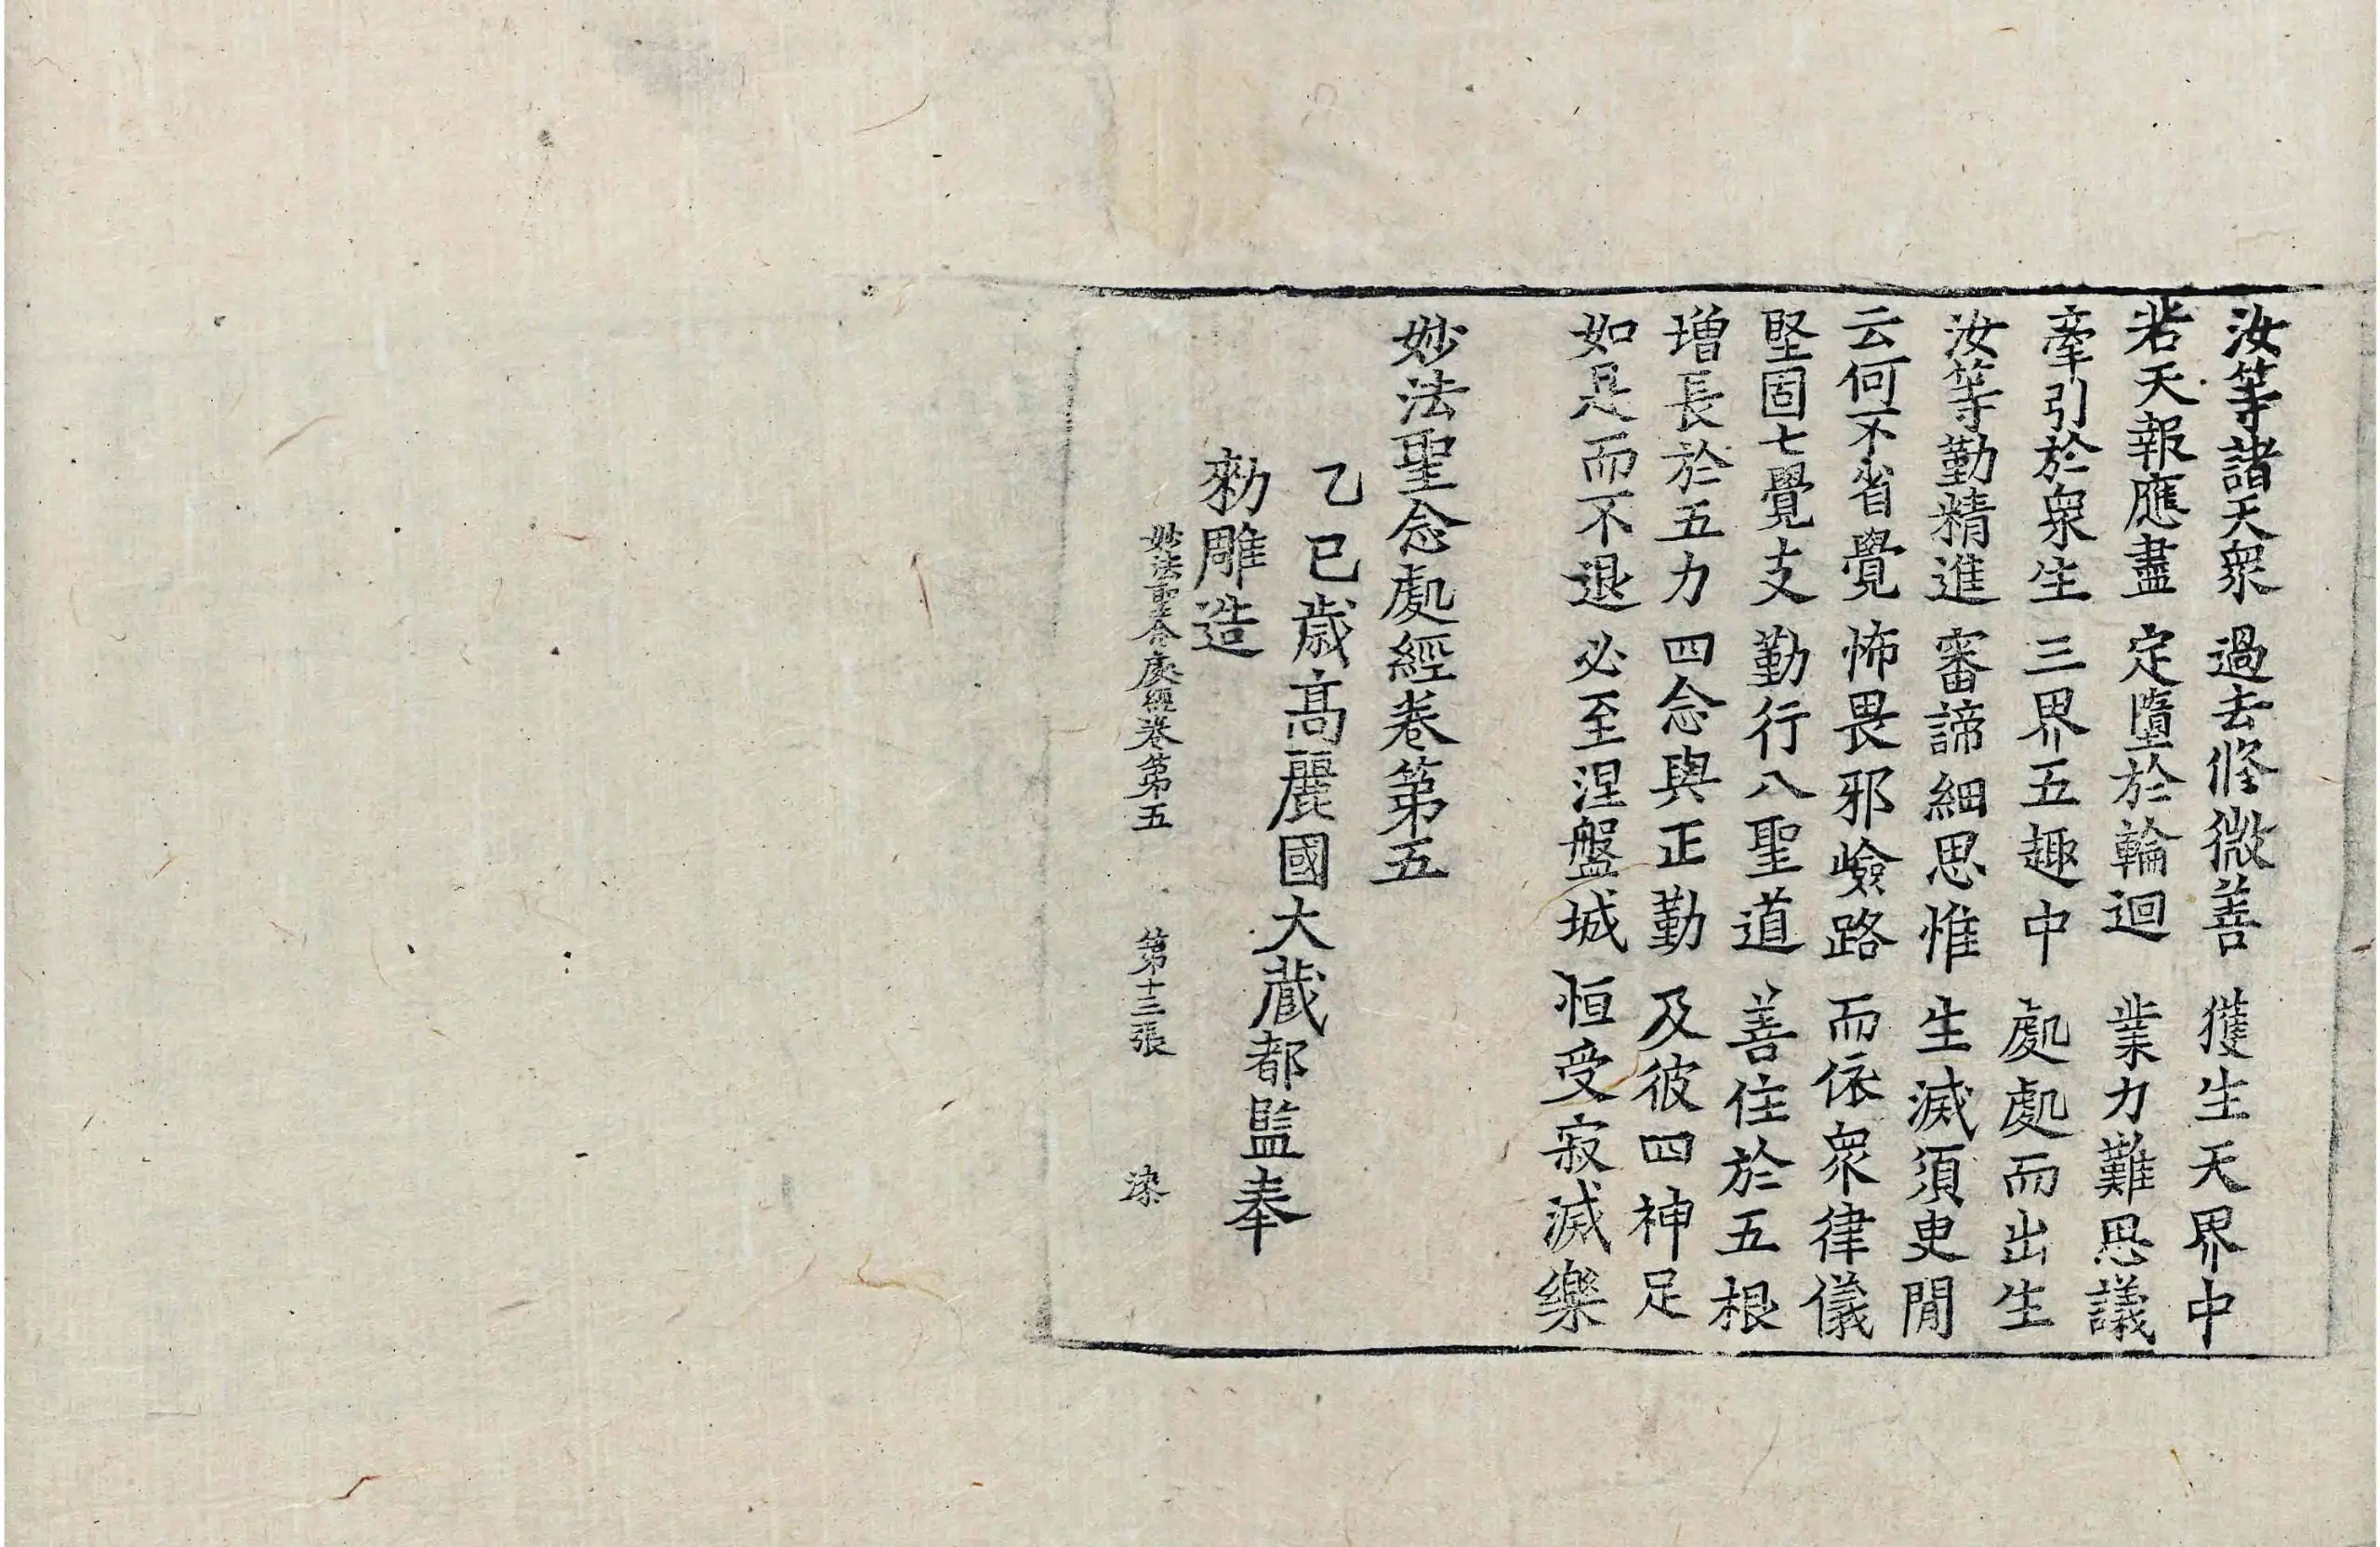 汝等諸天衆 過去修微善 獲生天界中
若天報應盡 定墮於輪迴 業力難思議
牽引於衆生 三界五趣中 處處而出生
汝等勤精進 審諦細思惟 生滅須臾間
云何不省覺 怖畏邪嶮路 而依衆律儀
堅固七覺支 勤行八聖道 善住於五根
增長於五力 四念與正勤 及彼四神足
如是而不退 必至涅盤城 恒受寂滅樂
妙法聖念處經卷第五
乙巳歲高麗國大藏都監奉
勑雕造
妙法聖念處經卷第五 第十三張 染